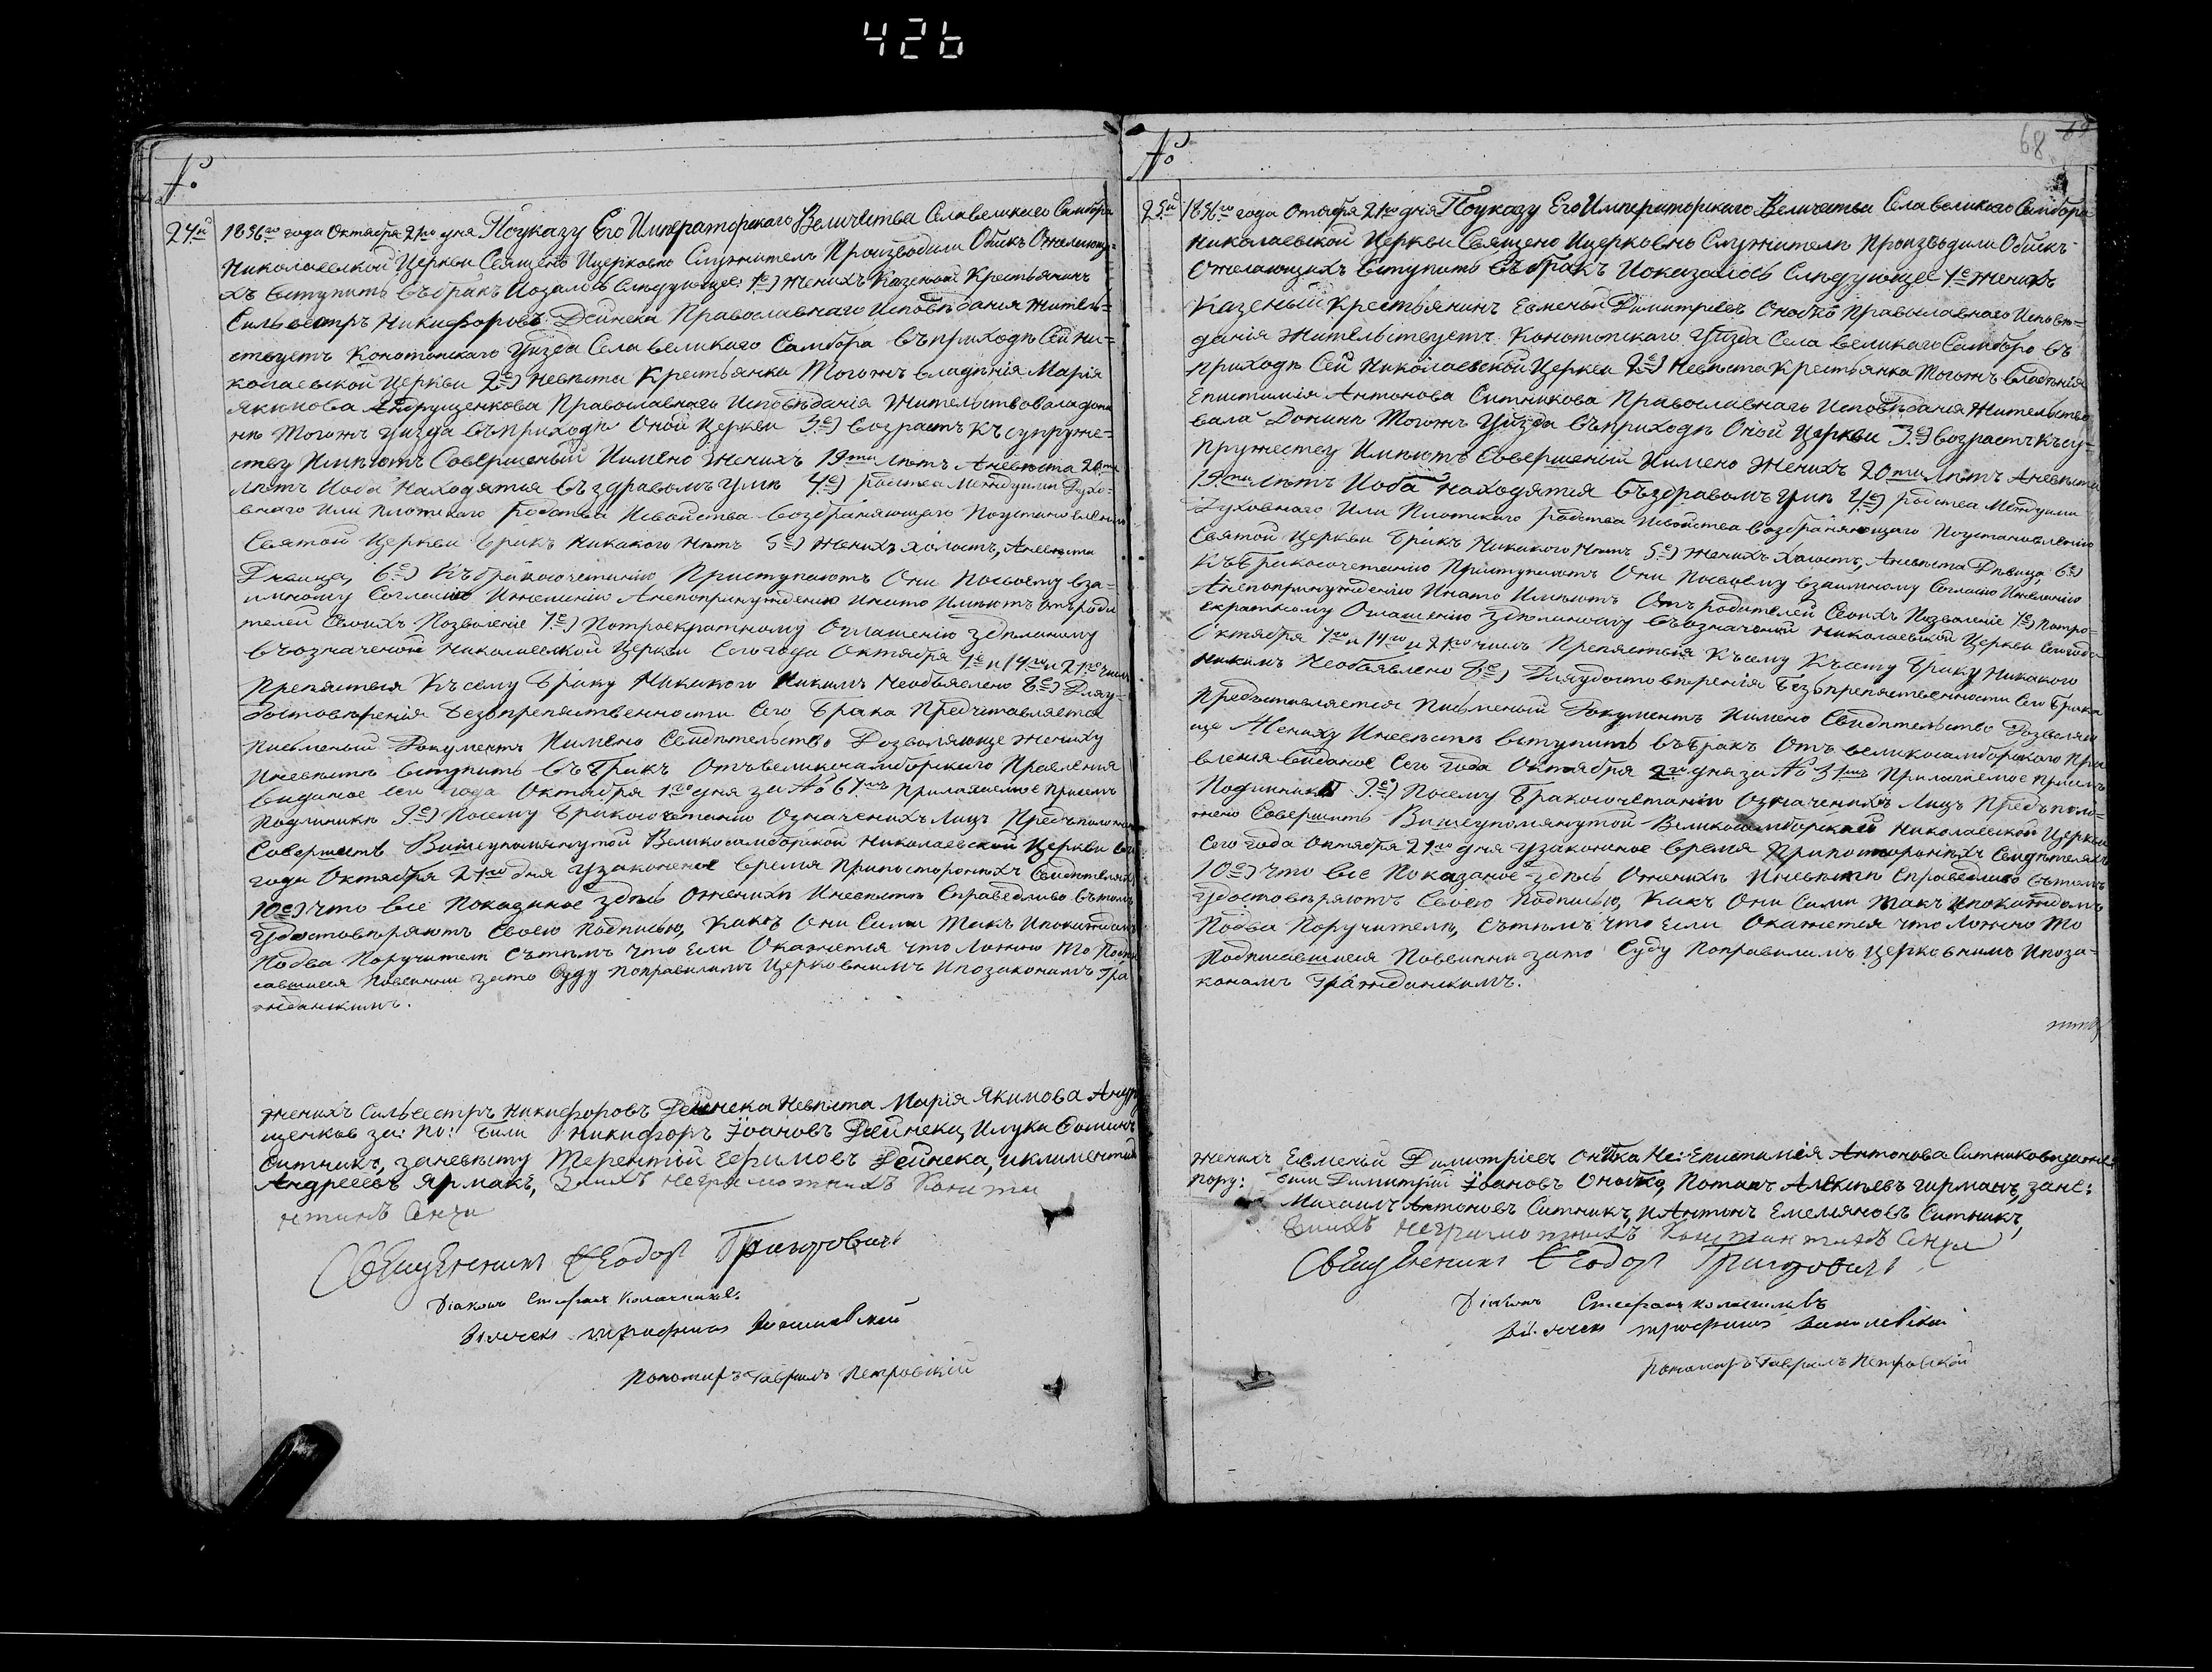 426
№
24й
1836го года Октября 21го дня Поуказу Его Императорскаго Величества Села великаго Самбора
Николаевской Церкви Священо Ицерковно Служители Производили Обыскъ Ожелающи-
хъ вступить въбракъ Иозалось Слѣдующее: 1е) женихъ Казеной Крестьянинъ
Сильвестръ Никифоровъ Дейнека Православнаго Исповѣдания жители=
ствуетъ Конотопскаго Уѣзда Села великаго Самбора въприходѣ Сей Ни=
колаевской церкви 2е) невѣста Крестьянка Тогожъ владѣнія Марія
Якимова Андрущенкова Православнаго Исповѣданія жителствовала доны
нѣ Тогожъ Уизда въприходѣ Оной Церкви 3е) возрастъ Къ супруже=
ству Имѣютъ Совершеный Имено Женихъ 19ти лѣтъ Аневѣста 20ти
лѣтъ Иоба находятся въздравомъ умѣ 4е) родства Междуими Духо-
внаго Или плотскаго родства Исвойства возбраняющаго Поустановлению
Святой Церкви бракъ Никакого Нѣтъ 5е) женихъ холостъ, Аневѣста
Дѣвица, 6е) Къбракосочетанію Приступаютъ Они Посвоему вза-
имному Согласию Ижеланію Анепопринуждению Инато Имѣютъ отъ роди
телей Своихъ Позволеніе 7е) Потроекратному Оглашенію зделаному
въозначеной Николаевской Церкви Сегогода Октября 1е и 14го и 21го числъ
Препятствія Къ сему браку Никакого Никимъ Необъявлено 8е) Для у-
достовѣренія Безопрепятственности Сего брака Предъставляется
письменый Документъ Имено Свидѣтельство Дозволяюще жениху
Иневѣстѣ вступить въ бракъ Отъвеликосамборскаго Правления
виданое Сего года Октября 1го дня за № 61мъ прилагаемое присемъ
подлинникѣ 9е) Посему бракосочетанию Означенихъ Лицъ Предъположено
Совершить Вишеупомянутой Великосамборской Николаевской Церкви сего
года Октября 21го дня Узаконеное время Припостороннихъ Свидѣтеляхъ
10е) Что все Показаное здѣсь Оженихѣ Иневѣстѣ Справедливо въ томъ
Удостовѣряютъ Своею Подписью, Какъ Они Сами Такъ Ипокаждомъ
Подва Поручители Сътѣмъ что Если Окажется что Ложно То Подпи
савшиеся Повинни зато Суду Поправиламъ Церковнимъ Ипозаконамъ Гра
жданскимъ.
женихъ Сильвестръ Никифоровъ Дейнека Невѣста Марія Якимова Андру
щенкова за: по: били Никифоръ Іоановъ Дейнека, Илука Фоминъ
Ситникъ, заневѣсту Терентій Ефимовъ Дейнека, иклиментій
Андреевъ Ярмакъ, Заихъ неграмотнихъ Конста
нтинъ Сенчи
Священникъ Феодоръ Григоровичъ
Діаконъ Стефанъ
Діячекъ Трофимъ
Пономаръ Гаврилъ Петровскій
№
68
25й
1836го года Отября 21го дня Поуказу Его Императорскаго Величества Села великаго Самбора
Николаевской Церкви Священо Ицерковно Служители Производили Обыскъ
Ожелающихъ вступить въ бракъ Показалось Слѣдующее 1е женихъ
Казеный Крестьянинъ Евмений Димитриевъ Онобко Православнаго Исповѣ=
данія Жительствуетъ Конотопскаго Уизда Села Великаго Самборо въ
приходѣ Сей Николаевской Церкви 2е) Невѣста Крестьянка Тогожъ Владѣнія
Епистимія Антонова Ситникова Православнаго Исповѣданія Жительство
вала Донинѣ Тогожъ Уйзда въприходѣ Оной Церкви 3е) возрастъ Късу-
пружеству Имѣютъ Совершеный Имено Женихъ 20ти лѣтъ Аневѣста
19ти лѣтъ Иоба находятся въздравомъ умѣ 4е) родства Междуими
Духовнаго Или Плотскаго родства Исвойства возбраняющаго Поустановлению
Святой Церкви бракъ Никакого Нѣтъ 5е) женихъ Холостъ, Аневѣста Дѣвица, 6е)
Къбракосочетанию Приступаютъ Они Посвоему взаимному Согласию Ижеланию
Анепопринуждению Инато Имѣютъ Отъ родителей Своихъ Позволение 7е) Потро-
екратному Оглашению зделанному въозначеной Николаевской Церкви Сегогода
Октября 7го и 14го и 21го числъ Препятствія Късему Късему браку Никакого
Никимъ Необъявлено 8е) Дляудостовѣренія Безопрепятственности Сего брака
Предъставляется Письменый Документъ Имено Свидѣтельство Дозволяю
ще Жениху Иневѣстѣ вступить въ бракъ Отъ великосамборскаго Пра
вления виданое Сего года Октября дня за № 31мъ Прилагаемое присемъ
Подлинникѣ 9е) Посему бракосочетании Означенихъ Лицъ Предъполо-
жено Совершить Вишеупомянутой Великосамборской Николаевской Церкви
Сего года Октября 21го дня узаконеное время Припостороннихъ Свидѣтеляхъ
10е) Что все Показаное здѣсь Оженихѣ Иневѣстѣ Справедливо въ томъ
Удостовѣряютъ Своею Подписью, Какъ Они Сами Такъ Ипокаждомъ
Подва Поручители, Сътѣмъ что Если Окажется что Ложно То
Подписавшиеся Повинни зато Суду Поправиламъ Церковнимъ Ипоза-
конамъ Гражданскимъ.
женихъ Евменый Димитріевъ Онобка Не: Епистимия Антонова Ситникова
пору: били Димитрій Іоановъ Онобко, Потапъ Алексѣевъ Гирманъ, зане:
Михаилъ Антоновъ Ситникъ, Антонъ Емеляновъ Ситникъ,
Заихъ неграмотнихъ Константинъ Сенчи
Священникъ Феодоръ Григоровичъ
Діаконъ Стефанъ
Трофимъ
Пономаръ Гаврилъ Петровскій